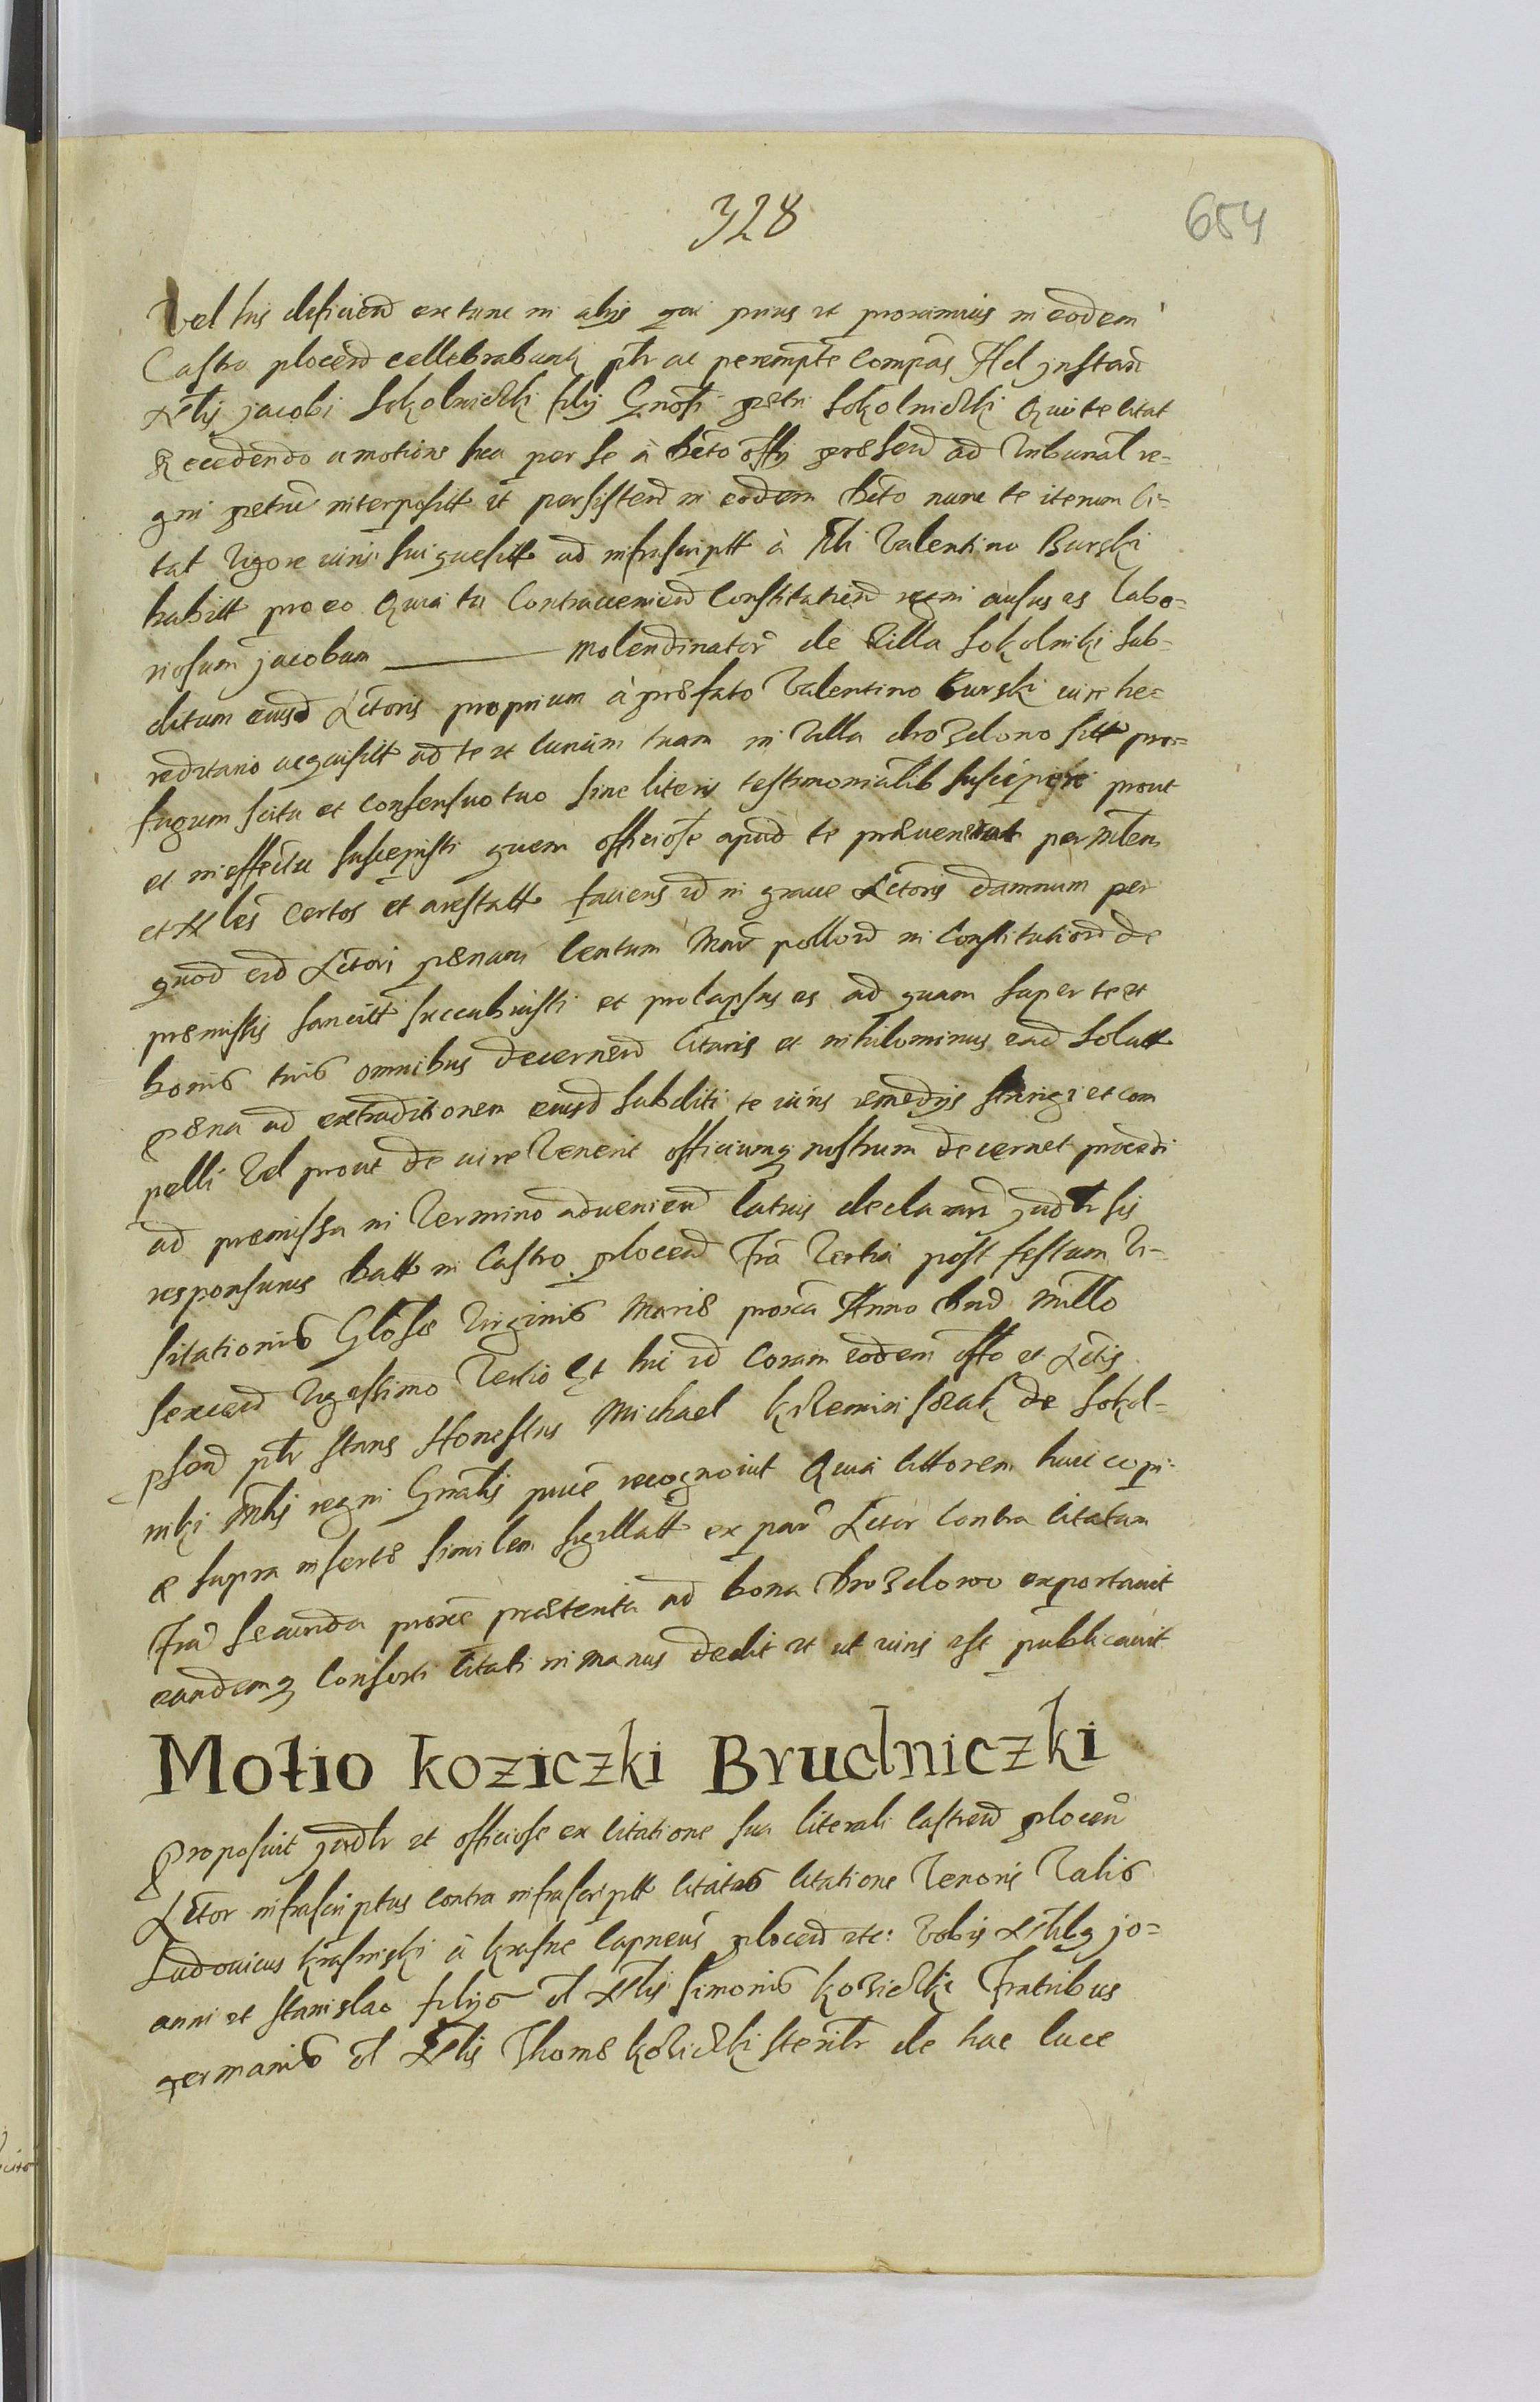 328
654
Vel his deficien extunc in alijs qui prius et proximius in eodem
Castro plocen cellebrabunt ptr ac perempte compas Ad Instan
Nlis Jacobi Sokolnicki filij Gnosi petri Sokolnicki Qui te citat
Recedendo a motione sua per se à decto offi presen ad Tribunal re=
gni petric interposit et persisten in eodem decto nunc te iterum ci=
tat Vigore iuris sui quesit ad infrascript à Nli Valentino Burski
habit pro eo Quia tu Contravenien Constitutien regni ausus es Labo=
riosum Jacobum ——— Molendinator de Villa Sokolniki sub=
ditum eiusd Actoris proprium à prefato Valentino Burski iure he=
reditario acquisit ad te et curiam tuam in Villa drozdono sitt pro=
fugum scitu et consensuo tuo sine literis testimonialib suscipere prout
et in effectu suscepisti quem officiose apud te pervenerat per Mlem
et Nles Certos et arestatt faciens id in grave Actoris damnum per
quod eid Actori penam Centum Mar pollon in Constitution de
premissis sancitt succubuisti et prolapsus es ad quam super te et
bonis tuis omnibus decernend Citaris et nihilominus ead solutt
pena ad extraditionem eiusd subditi te iuris remedijs stringi et com
pelli Vel prout de iure Venerit officiumq nostrum decernet procedi
ad premissa in Termino advenien latius declaran Judtr sis
responsurus datt in Castro plocen Fra Tertia post festum Vi=
sitationis Glose Virginis Marie proxa Anno Dnd Millo
sexcen Vigessimo Tertio Et hic id Coram eodem offo et Actis
psen ptr stans Honestus Michael krzemin szak de Sokol=
niki Mlis regni Gnalis iurce recognovit Quia littorem huic copi=
e supra inserte similem sigillatt ex par Actor Contra Citatum
Fra Secunda proxe preterita ad bona drozdowo exportavit
eandemq Consorti Citati in manus dedit et ut iuris est publicavit
Motio koziczki Brudniczki
Proposuit Judtr et officiose ex Citatione sua literali Castren plocen
Actor infrascriptus contra infrascriptt citatos Citatione Tenoris Talis
Ludovicus krasinski à krasne Capneus plocen etc: Vobis Nlibq Jo=
anni et Stanislao filijs ol Nlis Simonis kozicki Fratribus
germanis ol Nlis Thome kozicki sterilr de hac luce